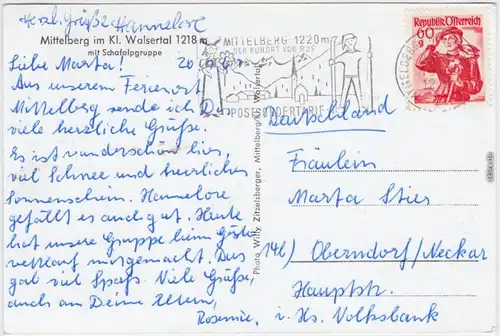 Herzl. Grüße Hannelore
Mittelberg im Kl. Walsertal 1218 m
mit Schafalpgruppe
Liebe Marta! 20
Aus unserem Ferienort
Mittelberg sende ich Dir
viele herzliche Grüße.
Es ist wunderschön hier,
viel Schnee und herrlichen
Sonnenschein. Hannelore
gefällt es auch gut. Heute
hat unsere Gruppe beim
mitgemacht. Das
gab viel Spaß. Viele Grüße,
auch an Deine Eltern,
Rosemie,
Photo Willy Zitzelsberger, Mittelberg/Kl. Walsertal
MITTELBERG 1220m
DER KURORT VON RUF
POSTSONDERTARIF
Republik Österreich
60
g
Deutschland
Fräulein
Marta Sties
14b) Oberndorf/Neckar
Hauptstr.
i. Hs. Volksbank